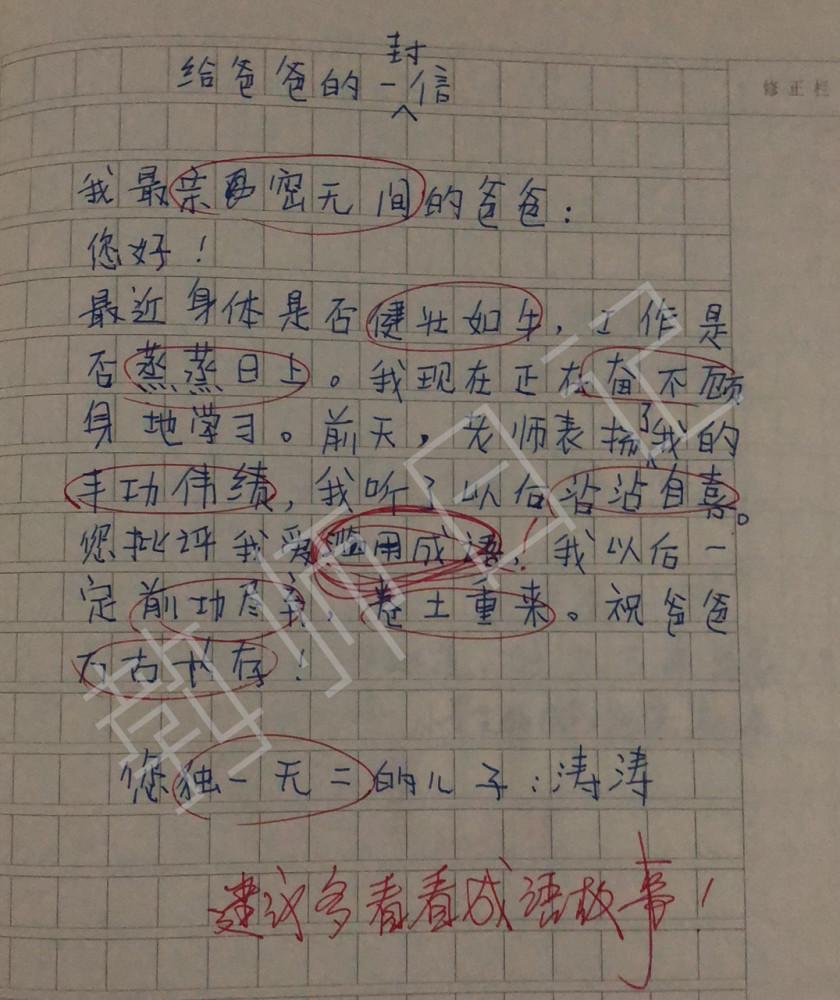 给爸爸的一封信
修正栏
我最亲密无间的爸爸：
您好！
最近身体是否健壮如牛，工作是
否蒸蒸日上。我现在正在奋不顾
身地学习。前天，老师表扬了我的
丰功伟绩，我听了以后沾沾自喜。
您批评我爱滥用成语，我以后一
定前功尽弃，卷土重来。祝爸爸
万古长存！
您独一无二的儿子：涛涛
建议多看看成语故事！
韩师日记